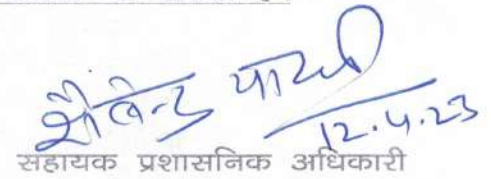 शैलेन्द्र
12.4.23
सहायक प्रशासनिक अधिकारी